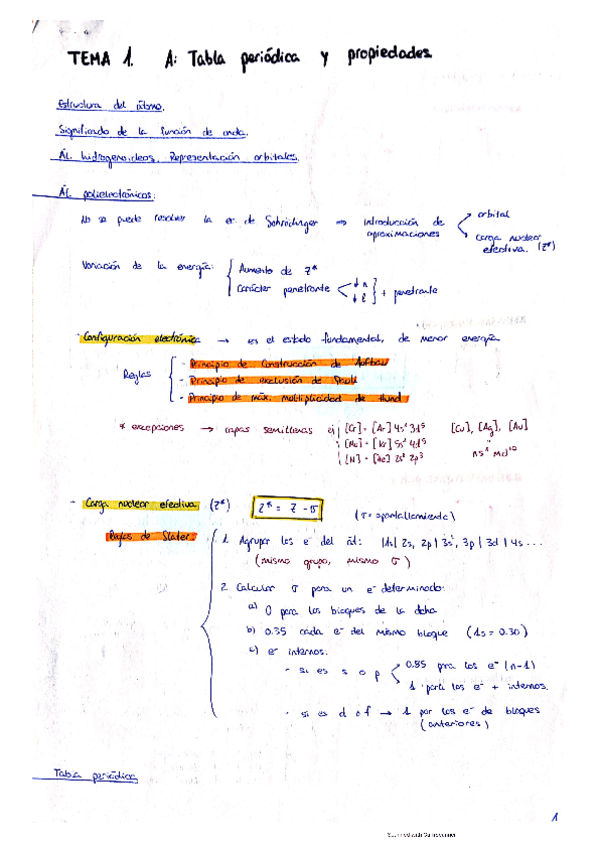 TEMA 1. A: Tabla periódica y propiedades.
Estructura del átomo.
Significado de la función de onda.
Át. hidrogenoideos. Representación orbitales.
Át. polielectrónicos:
No se puede resolver la ec. de Schrödinger → Introducción de aproximaciones
orbital
carga nuclear efectiva. (Z*)
Variación de la energía:
Aumento de Z*
Carácter penetrante
↓ n
↓ l
+ penetrante
- Configuración electrónica → es el estado fundamental, de menor energía
Reglas
- Principio de Construcción de Aufbau
- Principio de exclusión de Pauli
- Principio de máx. multiplicidad de Hund
* excepciones → capas semillenas ej
[Cr] = [Ar] 4s¹ 3d⁵
[Mo] = [Kr] 5s¹ 4d⁵
[N] = [He] 2s² 2p³
[Cu], [Ag], [Au]
ns¹ md¹⁰
- Carga nuclear efectiva (Z*)
Z* = Z - σ
(σ = apantallamiento)
Reglas de Slater:
1. Agrupar los e⁻ del át: |1s| 2s, 2p | 3s, 3p | 3d | 4s ...
(mismo grupo, mismo σ)
2. Calcular σ para un e⁻ determinado:
a) 0 para los bloques de la dcha
b) 0.35 cada e⁻ del mismo bloque (1s = 0.30)
c) e⁻ internos:
- si es s o p
0.85 para los e⁻ (n-1)
1 para los e⁻ + internos.
- si es d o f → 1 por los e⁻ de bloques
(anteriores)
Tabla periódica
1